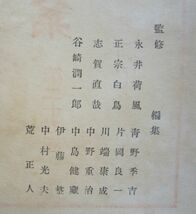 監修
永井荷風
正宗白鳥
志賀直哉
谷崎潤一郎
編集
青野季吉
片岡良一
川端康成
中野重治
中島健蔵
伊藤整
中村光夫
荒正人